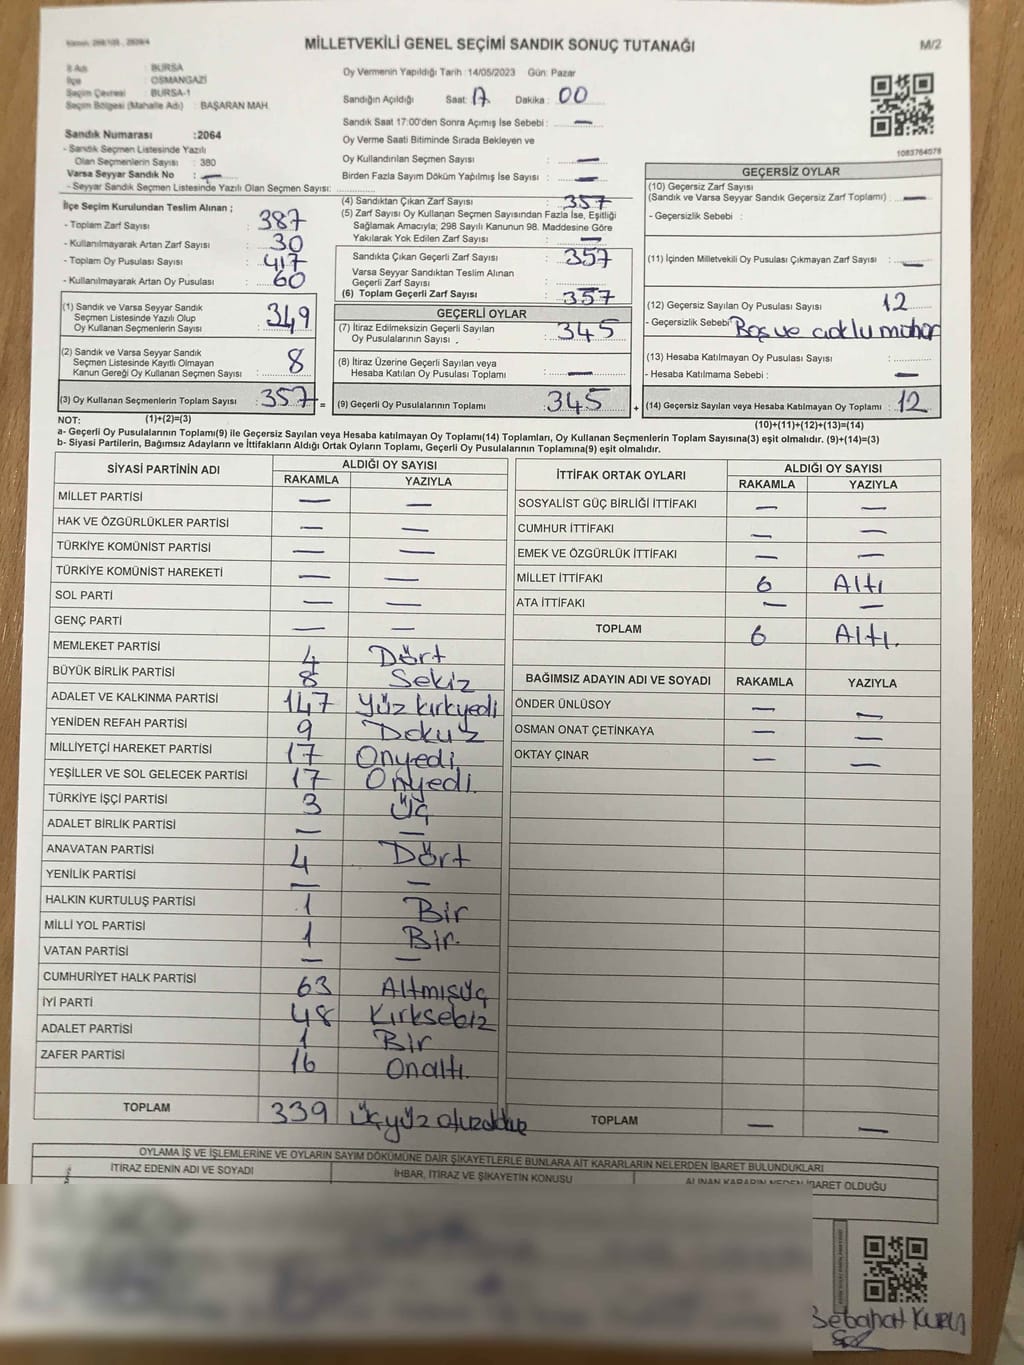 MİLLETVEKİLİ GENEL SEÇİMİ SANDIK SONUÇ TUTANAĞI
M/2
İl Adı : BURSA
İlçe : OSMANGAZİ
Seçim Çevresi : BURSA-1
Seçim Bölgesi (Mahalle Adı) : BAŞARAN MAH.
Sandık Numarası : 2064
- Sandık Seçmen Listesinde Yazılı
Olan Seçmenlerin Sayısı : 380
Varsa Seyyar Sandık No : —
- Seyyar Sandık Seçmen Listesinde Yazılı Olan Seçmen Sayısı: ..............
Oy Vermenin Yapıldığı Tarih : 14/05/2023 Gün: Pazar
Sandığın Açıldığı Saat: 17 Dakika : 00
Sandık Saat 17:00'den Sonra Açımış İse Sebebi : —
Oy Verme Saati Bitiminde Sırada Bekleyen ve
Oy Kullandırılan Seçmen Sayısı : —
Birden Fazla Sayım Döküm Yapılmış İse Sayısı : —
1083764078
İlçe Seçim Kurulundan Teslim Alınan ;
- Toplam Zarf Sayısı : 387
- Kullanılmayarak Artan Zarf Sayısı : 30
- Toplam Oy Pusulası Sayısı : 417
- Kullanılmayarak Artan Oy Pusulası : 60
(1) Sandık ve Varsa Seyyar Sandık
Seçmen Listesinde Yazılı Olup
Oy Kullanan Seçmenlerin Sayısı : 349
(2) Sandık ve Varsa Seyyar Sandık
Seçmen Listesinde Kayıtlı Olmayan
Kanun Gereği Oy Kullanan Seçmen Sayısı : 8
(3) Oy Kullanan Seçmenlerin Toplam Sayısı : 357 =
(1)+(2)=(3)
(4) Sandıktan Çıkan Zarf Sayısı : 357
(5) Zarf Sayısı Oy Kullanan Seçmen Sayısından Fazla İse, Eşitliği
Sağlamak Amacıyla; 298 Sayılı Kanunun 98. Maddesine Göre
Yakılarak Yok Edilen Zarf Sayısı : —
Sandıkta Çıkan Geçerli Zarf Sayısı : 357
Varsa Seyyar Sandıktan Teslim Alınan
Geçerli Zarf Sayısı :
(6) Toplam Geçerli Zarf Sayısı : 357
GEÇERLİ OYLAR
(7) İtiraz Edilmeksizin Geçerli Sayılan
Oy Pusulalarının Sayısı : 345
(8) İtiraz Üzerine Geçerli Sayılan veya
Hesaba Katılan Oy Pusulası Toplamı : —
(9) Geçerli Oy Pusulalarının Toplamı : 345 +
GEÇERSİZ OYLAR
(10) Geçersiz Zarf Sayısı
(Sandık ve Varsa Seyyar Sandık Geçersiz Zarf Toplamı) : —
- Geçersizlik Sebebi :
(11) İçinden Milletvekili Oy Pusulası Çıkmayan Zarf Sayısı : —
(12) Geçersiz Sayılan Oy Pusulası Sayısı 12
- Geçersizlik Sebebi Boş ve
(13) Hesaba Katılmayan Oy Pusulası Sayısı :
- Hesaba Katılmama Sebebi : —
(14) Geçersiz Sayılan veya Hesaba Katılmayan Oy Toplamı : 12
(10)+(11)+(12)+(13)=(14)
NOT:
a- Geçerli Oy Pusulaları Toplamı(9) ile Geçersiz Sayılan veya Hesaba katılmayan Oy Toplamı(14) Toplamları, Oy Kullanan Seçmenlerin Toplam Sayısına(3) eşit olmalıdır. (9)+(14)=(3)
b- Siyasi Partilerin, Bağımsız Adayların ve İttifakların Aldığı Ortak Oyların Toplamı, Geçerli Oy Pusulalarının Toplamına(9) eşit olmalıdır.
SİYASİ PARTİNİN ADI ALDIĞI OY SAYISI
RAKAMLA YAZIYLA
MİLLET PARTİSİ — —
HAK VE ÖZGÜRLÜKLER PARTİSİ — —
TÜRKİYE KOMÜNİST PARTİSİ — —
TÜRKİYE KOMÜNİST HAREKETİ — —
SOL PARTİ — —
GENÇ PARTİ — —
MEMLEKET PARTİSİ 4 Dört
BÜYÜK BİRLİK PARTİSİ 8 Sekiz
ADALET VE KALKINMA PARTİSİ 147 Yüz kırkyedi
YENİDEN REFAH PARTİSİ 9 Dokuz
MİLLİYETÇİ HAREKET PARTİSİ 17 Onyedi
YEŞİLLER VE SOL GELECEK PARTİSİ 17 Onyedi.
TÜRKİYE İŞÇİ PARTİSİ 3 Üç
ADALET BİRLİK PARTİSİ — —
ANAVATAN PARTİSİ 4 Dört
YENİLİK PARTİSİ — —
HALKIN KURTULUŞ PARTİSİ 1 Bir
MİLLİ YOL PARTİSİ 1 Bir.
VATAN PARTİSİ — —
CUMHURİYET HALK PARTİSİ 63 Altmışüç
İYİ PARTİ 48 Kırksekiz
ADALET PARTİSİ 1 Bir
ZAFER PARTİSİ 16 Onaltı.
TOPLAM 339 Üçyüz otuzdokuz
İTTİFAK ORTAK OYLARI ALDIĞI OY SAYISI
RAKAMLA YAZIYLA
SOSYALİST GÜÇ BİRLİĞİ İTTİFAKI — —
CUMHUR İTTİFAKI — —
EMEK VE ÖZGÜRLÜK İTTİFAKI — —
MİLLET İTTİFAKI 6 Altı
ATA İTTİFAKI — —
TOPLAM 6 Altı.
BAĞIMSIZ ADAYIN ADI VE SOYADI RAKAMLA YAZIYLA
ÖNDER ÜNLÜSOY — —
OSMAN ONAT ÇETİNKAYA — —
OKTAY ÇINAR — —
TOPLAM — —
OYLAMA İŞ VE İŞLEMLERİNE VE OYLARIN SAYIM DÖKÜMÜNE DAİR ŞİKAYETLERLE BUNLARA AİT KARARLARIN NELERDEN İBARET BULUNDUKLARI
İTİRAZ EDENİN ADI VE SOYADI İHBAR, İTİRAZ VE ŞİKAYETİN KONUSU ALINAN KARARIN NEDEN İBARET OLDUĞU
Sebahat